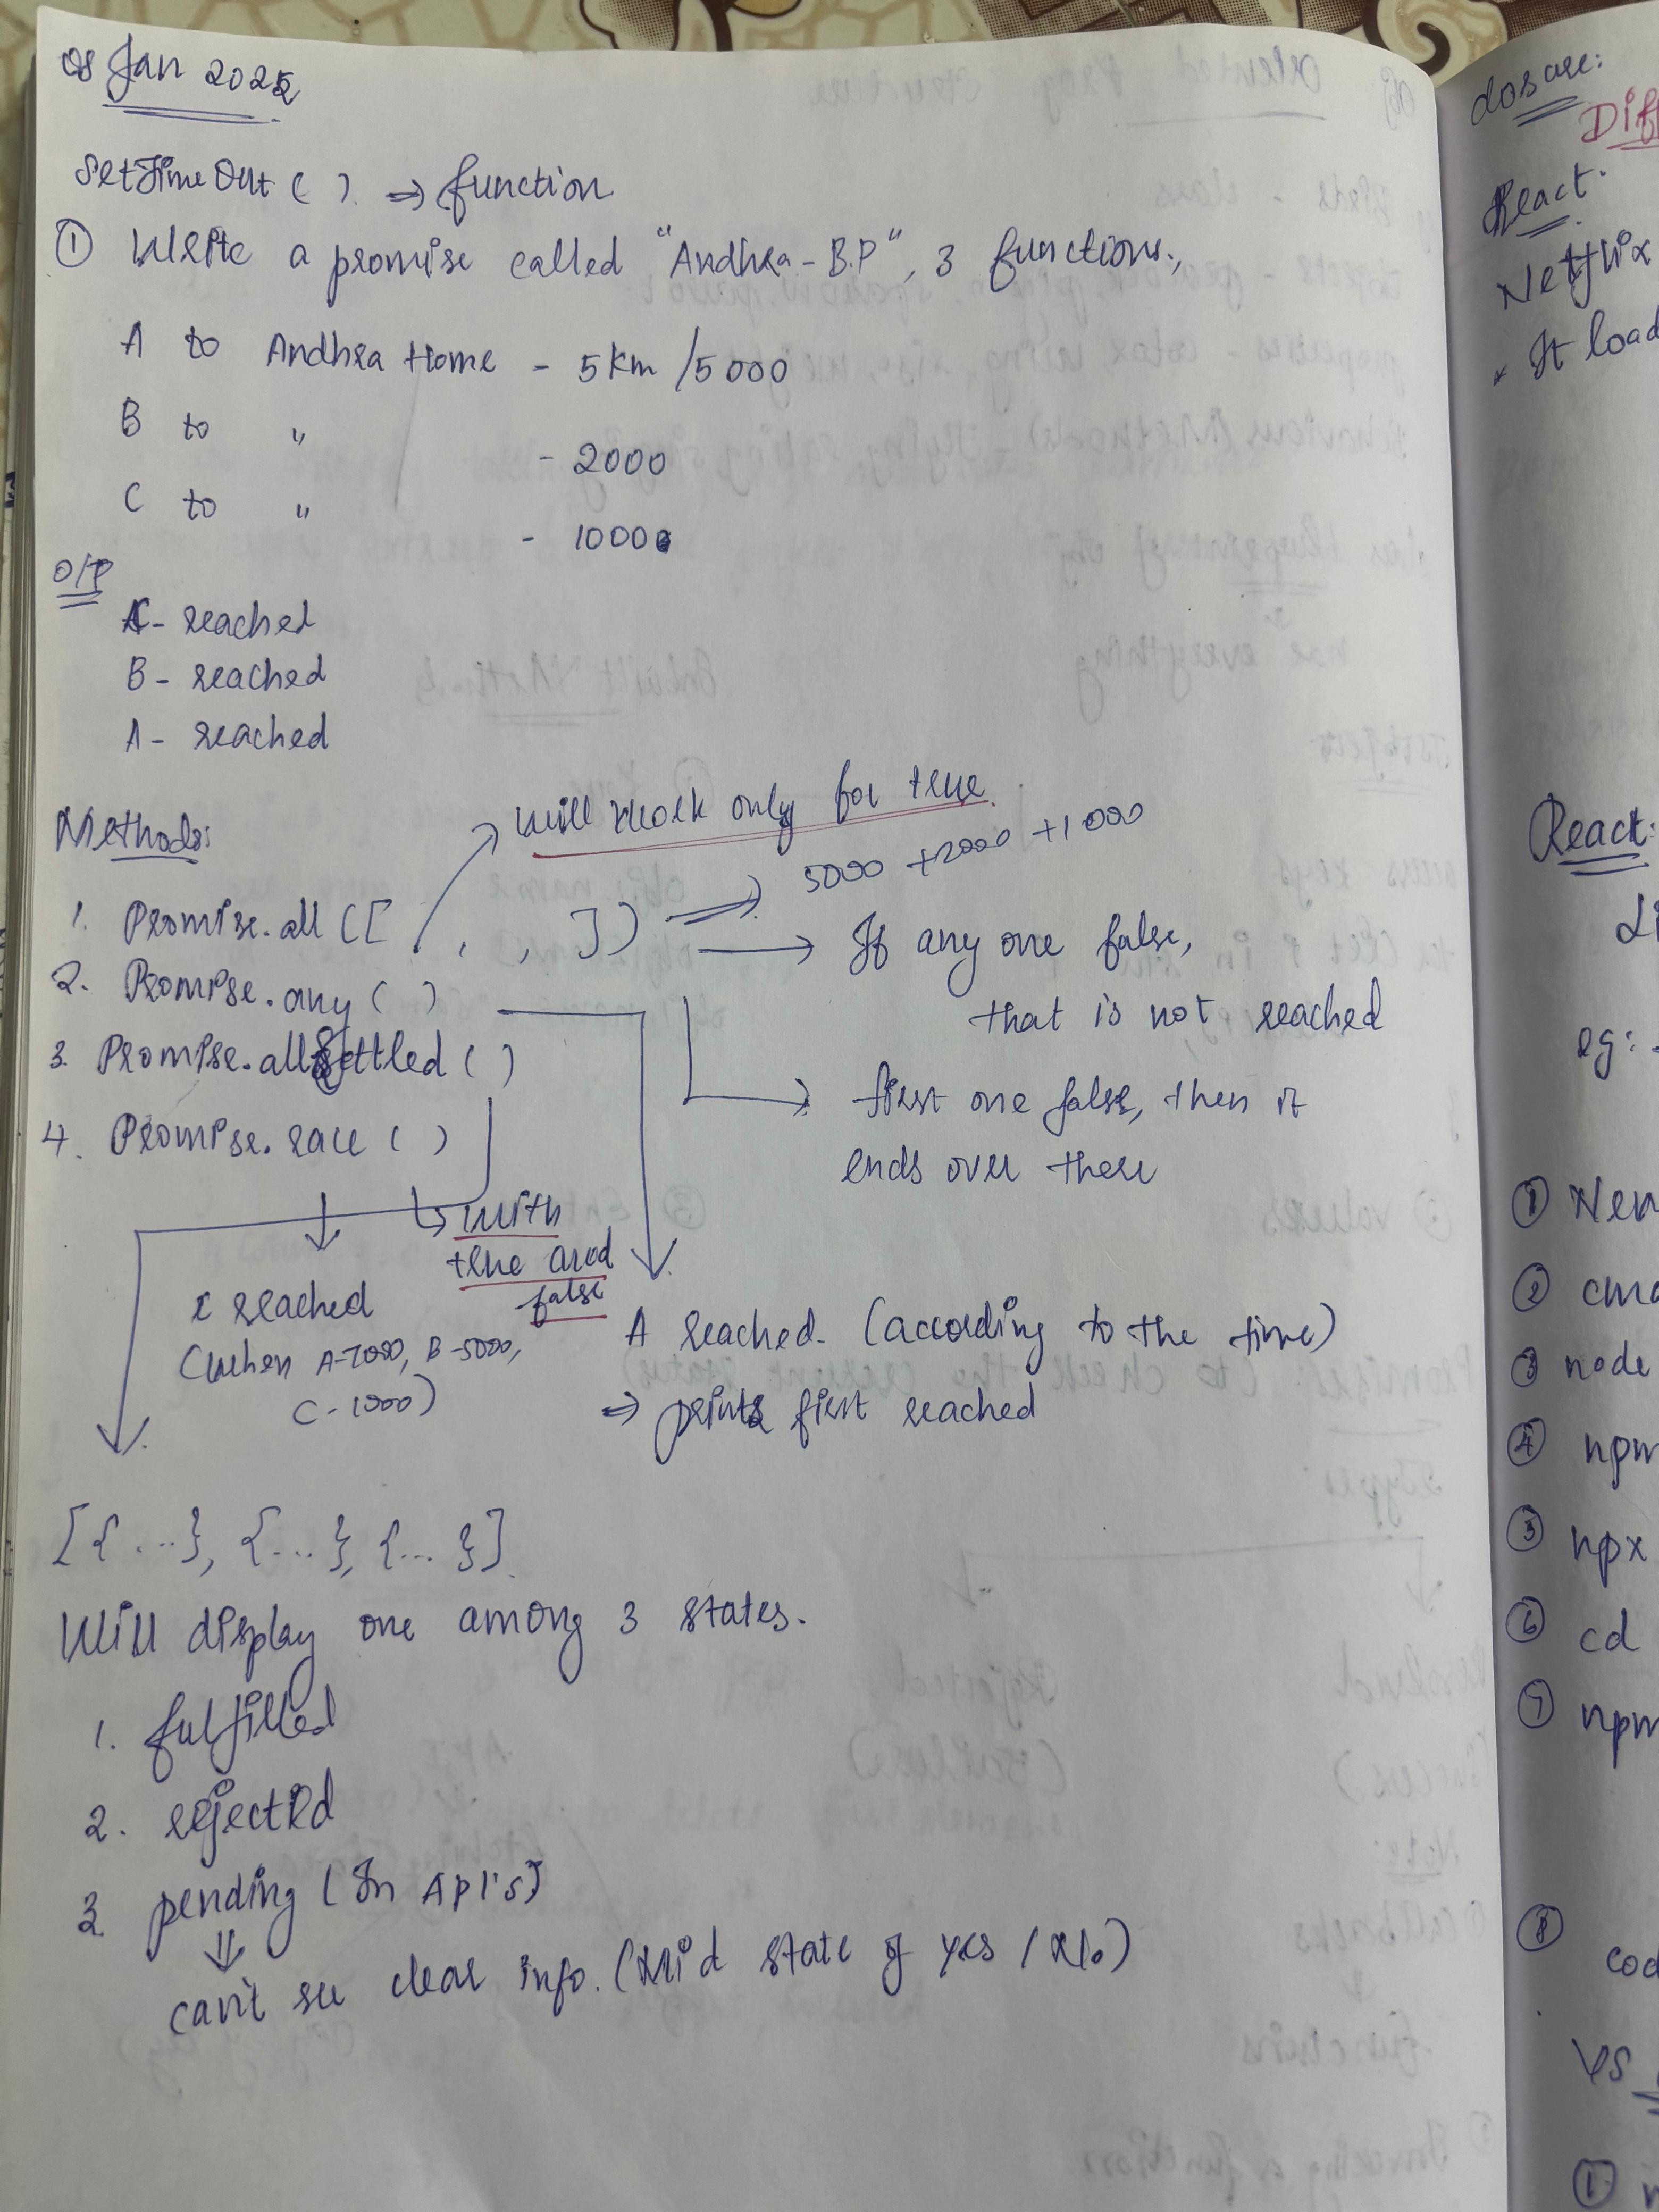 08 Jan 2025
SetTimeOut ( ). ⇒ function
① Write a promise called "Andhra-B.P", 3 functions.,
A to Andhra Home - 5km /5000
B to " - 2000
C to " - 1000
O/P
C- reached
B- reached
A- reached
Methods:
will work only for true.
5000 +2000 +1000
1. Promise.all ([ , , ])
If any one false,
that is not reached
2. Promise.any ( )
3. Promise.allSettled ( )
first one false, then it
ends over there
4. Promise.race ( )
with
true and
false
C reached
(when A-7000, B-5000,
C-1000)
A reached. (according to the time)
⇒ prints first reached
[{...}, {...}, {... }]
Will display one among 3 states.
1. fulfilled
2. rejected
3 pending (In API's)
⇓
can't see clear info. (Mid state of yes / No)
closure:
React:
Netflix
It load
React:
eg:
①
② cmd
③ node
④ npm
⑤ npx
⑥ cd
⑦ npm
⑧
VS
①